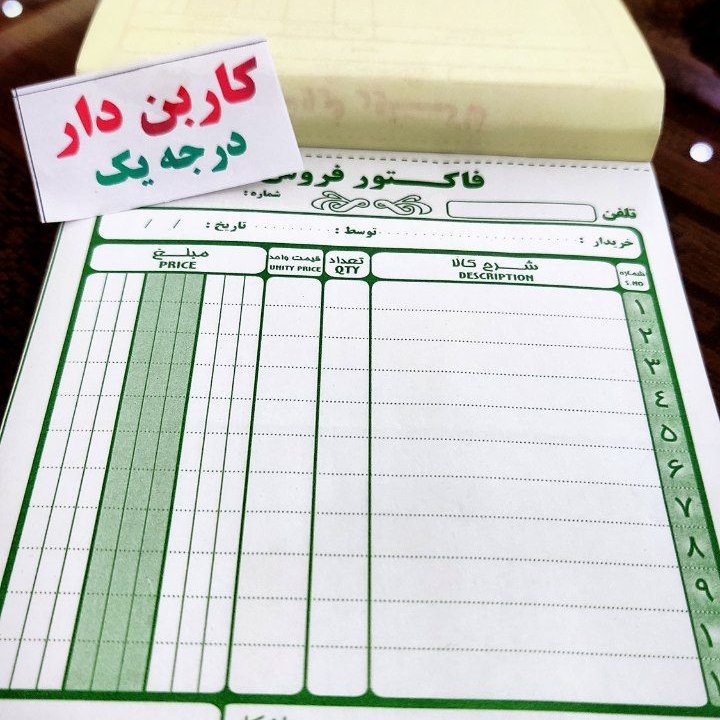 کاربن دار
درجه یک
فاکتور فروش
شماره :
تلفن
خریدار :
توسط :
تاریخ : / /
شماره
S.NO
شرح کالا
DESCRIPTION
تعداد
QTY
قیمت واحد
UNITY PRICE
مبلغ
PRICE
۱
۲
۳
٤
۵
۶
۷
۸
۹